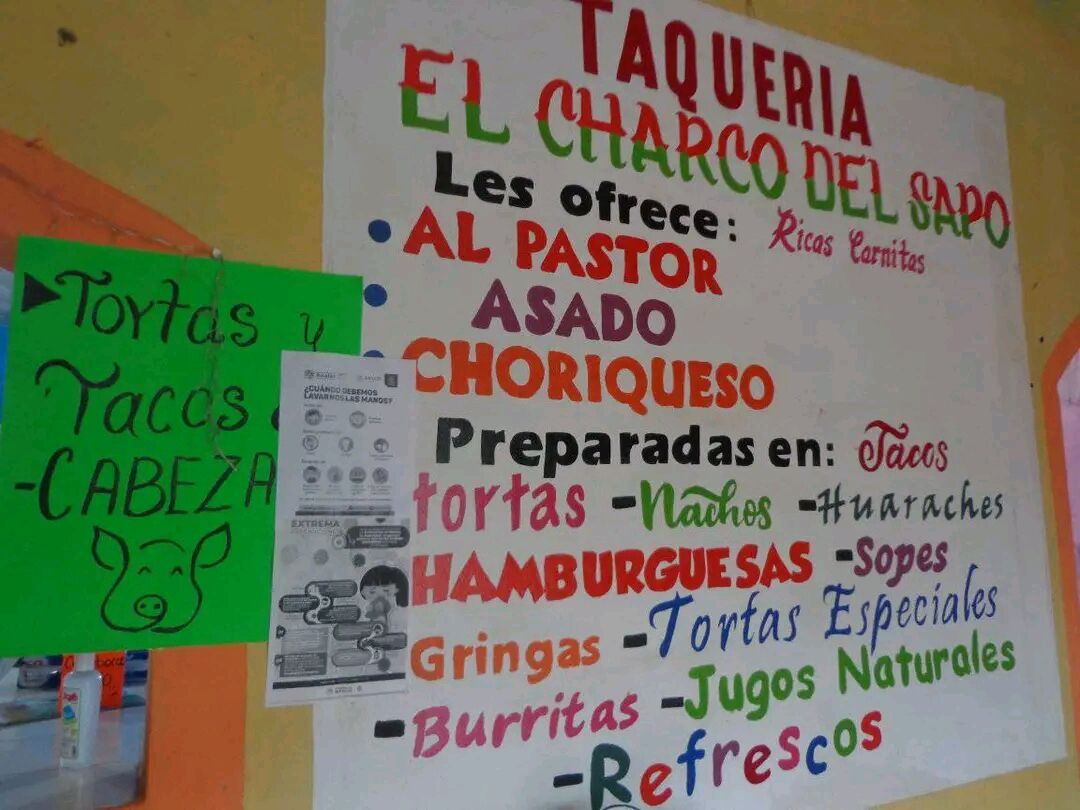 TAQUERIA
EL CHARCO DEL SAPO
Les ofrece: Ricas Carnitas
• AL PASTOR
• ASADO
• CHORIQUESO
Preparadas en: Tacos
tortas -Nachos -Huaraches
HAMBURGUESAS -Sopes
Gringas -Tortas Especiales
-Burritas -Jugos Naturales
-Refrescos
Tortas y
Tacos
-CABEZA
¿CUÁNDO DEBEMOS
LAVARNOS LAS MANOS?
EXTREMA